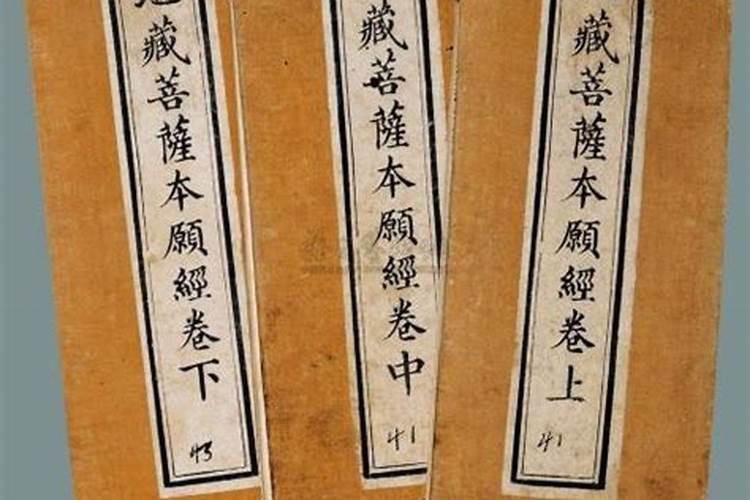 藏菩薩本願經卷上
41
藏菩薩本願經卷中
41
地藏菩薩本願經卷下